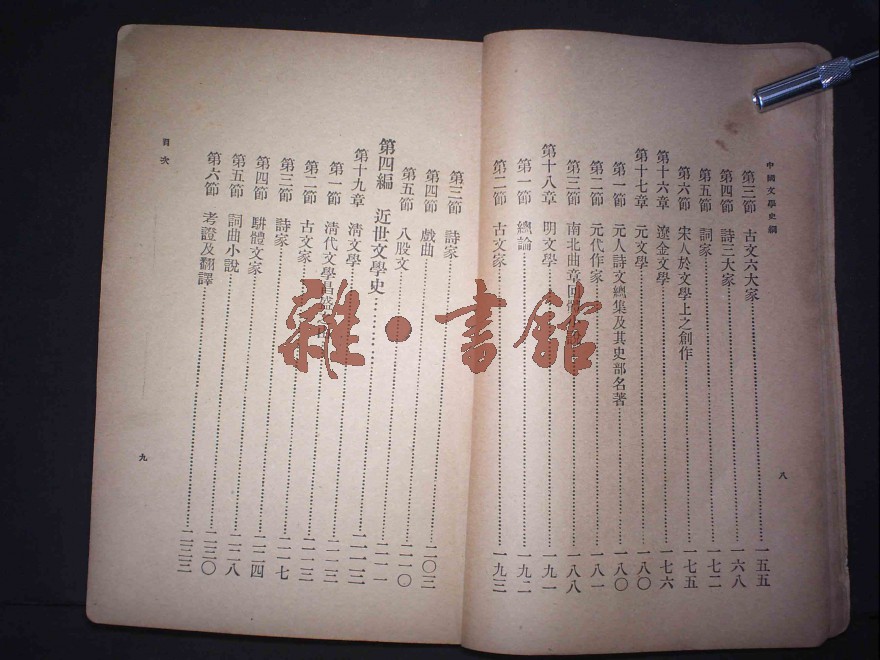 中國文學史綱
第三節 古文六大家……一五五
第四節 詩三大家……一六八
第五節 詞家……一七二
第六節 宋人於文學上之創作……一七五
第十六章 遼金文學……一七六
第十七章 元文學……一八〇
第一節 元人詩文總集及其史部名著……一八〇
第二節 元代作家……一八一
第三節 南北曲章回……一八八
第十八章 明文學……一九一
第一節 總論……一九二
第二節 古文家……一九三
八
第三節 詩家……二〇三
第四節 戲曲……二一〇
第五節 八股文……二一一
第四編 近世文學史……二一三
第十九章 清文學……二一三
第一節 清代文學昌盛……二一三
第二節 古文家……二一七
第三節 詩家……二二四
第四節 駢體文家……二二八
第五節 詞曲小說……二三〇
第六節 考證及翻譯……二三三
目次
九
雜·書館